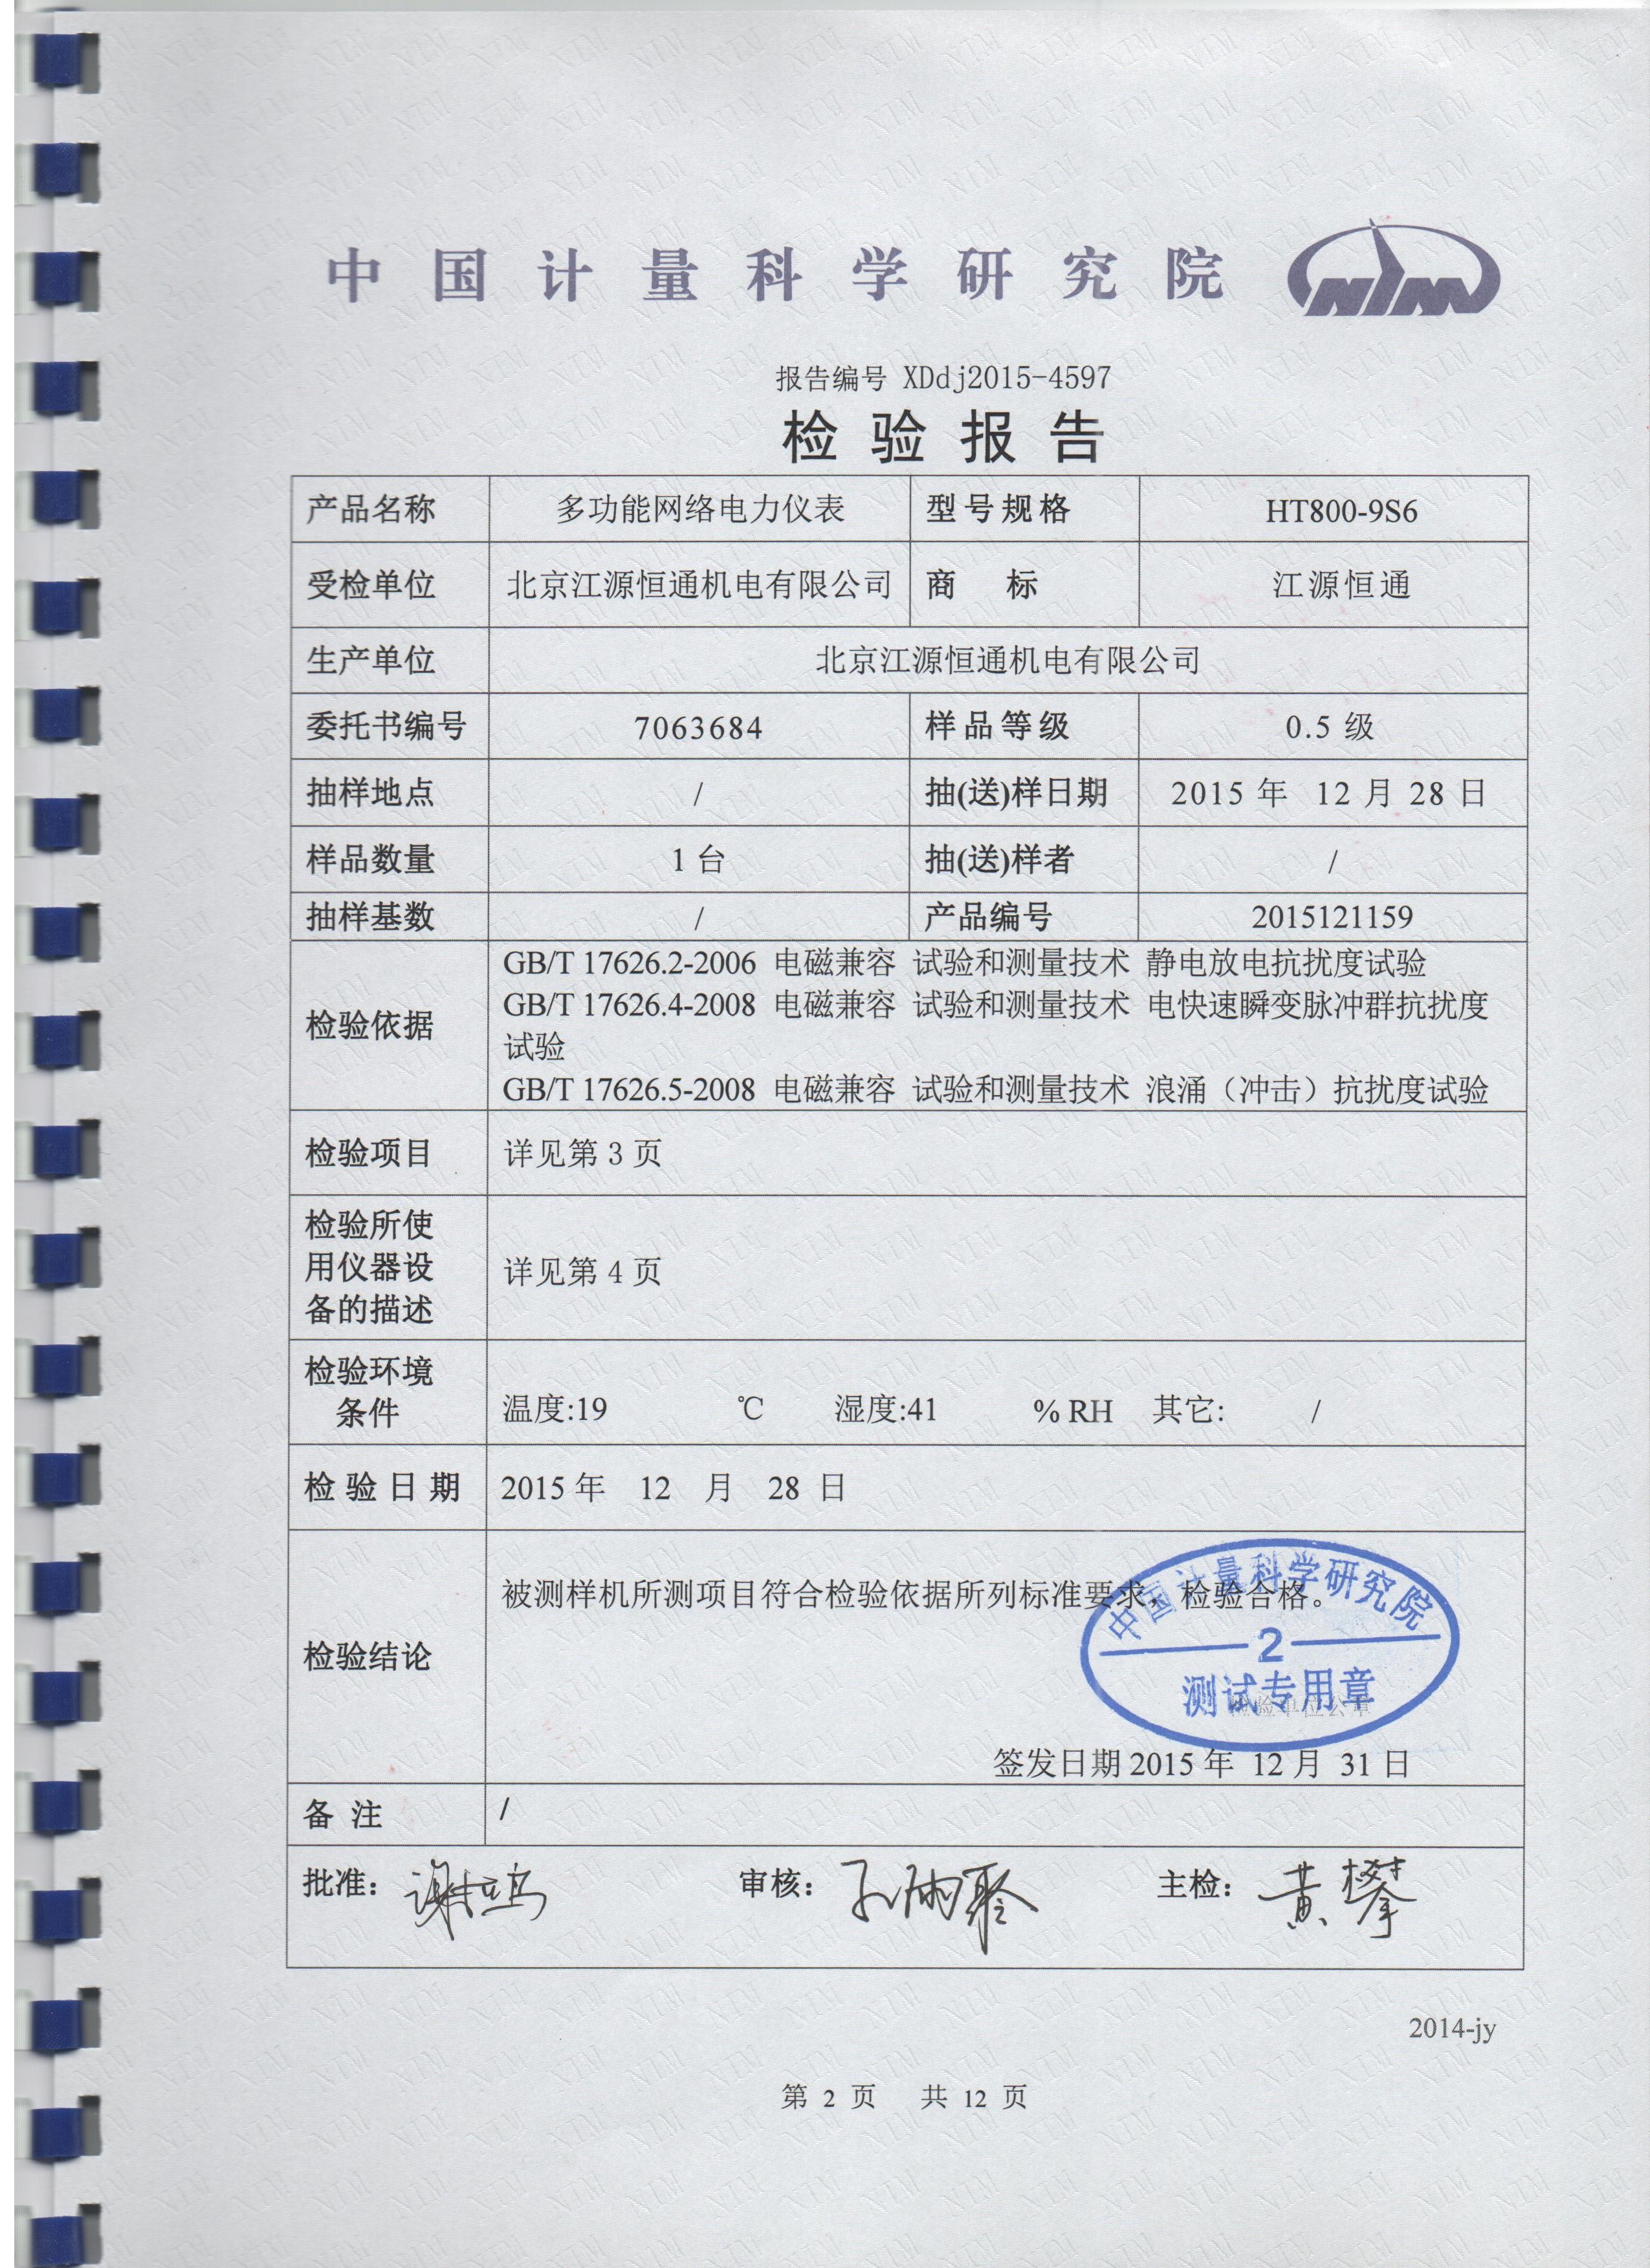 中国计量科学研究院 NIM
报告编号 XDdj2015-4597
检验报告
产品名称 多功能网络电力仪表 型号规格 HT800-9S6
受检单位 北京江源恒通机电有限公司 商 标 江源恒通
生产单位 北京江源恒通机电有限公司
委托书编号 7063684 样品等级 0.5 级
抽样地点 / 抽(送)样日期 2015 年 12 月 28 日
样品数量 1 台 抽(送)样者 /
抽样基数 / 产品编号 2015121159
检验依据
GB/T 17626.2-2006 电磁兼容 试验和测量技术 静电放电抗扰度试验
GB/T 17626.4-2008 电磁兼容 试验和测量技术 电快速瞬变脉冲群抗扰度
试验
GB/T 17626.5-2008 电磁兼容 试验和测量技术 浪涌（冲击）抗扰度试验
检验项目 详见第 3 页
检验所使
用仪器设
备的描述
详见第 4 页
检验环境
条件
温度:19 ℃ 湿度:41 % RH 其它: /
检验日期 2015 年 12 月 28 日
检验结论
被测样机所测项目符合检验依据所列标准要求，检验合格。
中国计量科学研究院
2
测试专用章
检验单位公章
签发日期 2015 年 12 月 31 日
备 注 /
批准： 审核： 主检：黄攀
2014-jy
第 2 页 共 12 页